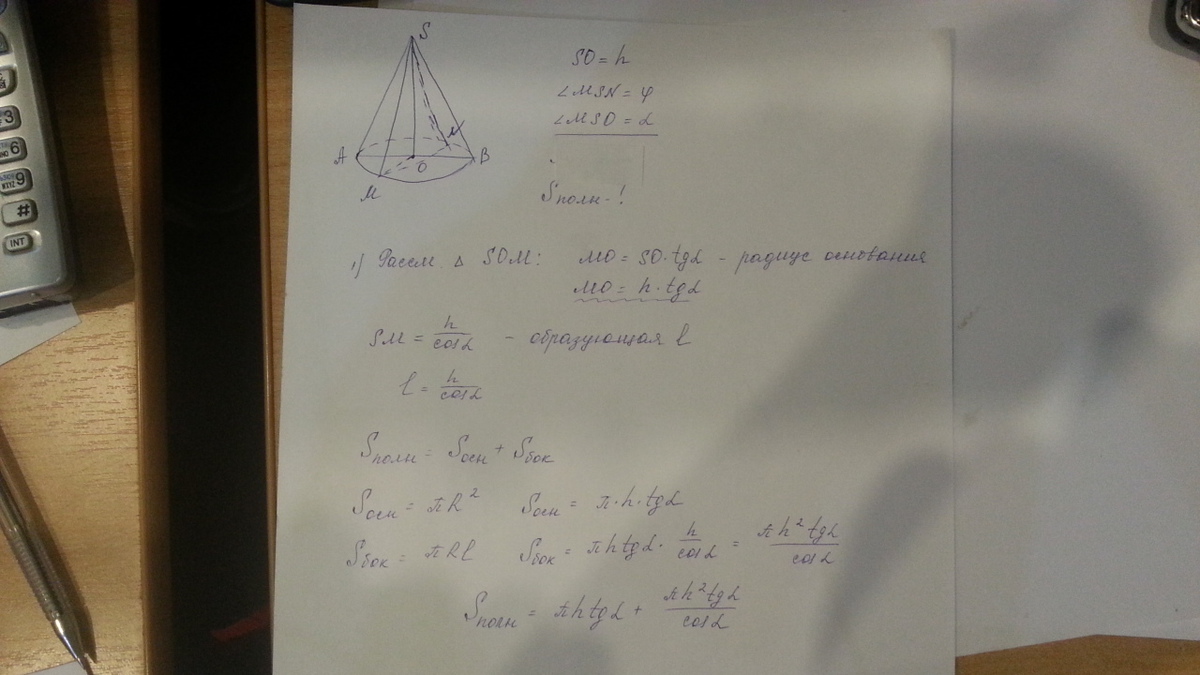 S
A
O
N
B
M
SO = h
∠MSN = φ
∠MSO = α
Sполн - !
1) Рассм. Δ SOM: MO = SO·tgα - радиус основания
MO = h·tgα
SM = h/cosα - образующая l
l = h/cosα
Sполн = Sосн + Sбок
Sосн = πR² Sосн = π·h·tgα
Sбок = πRl Sбок = πhtgα · h/cosα = πh²tgα/cosα
Sполн = πhtgα + πh²tgα/cosα
3
6
9
#
INT